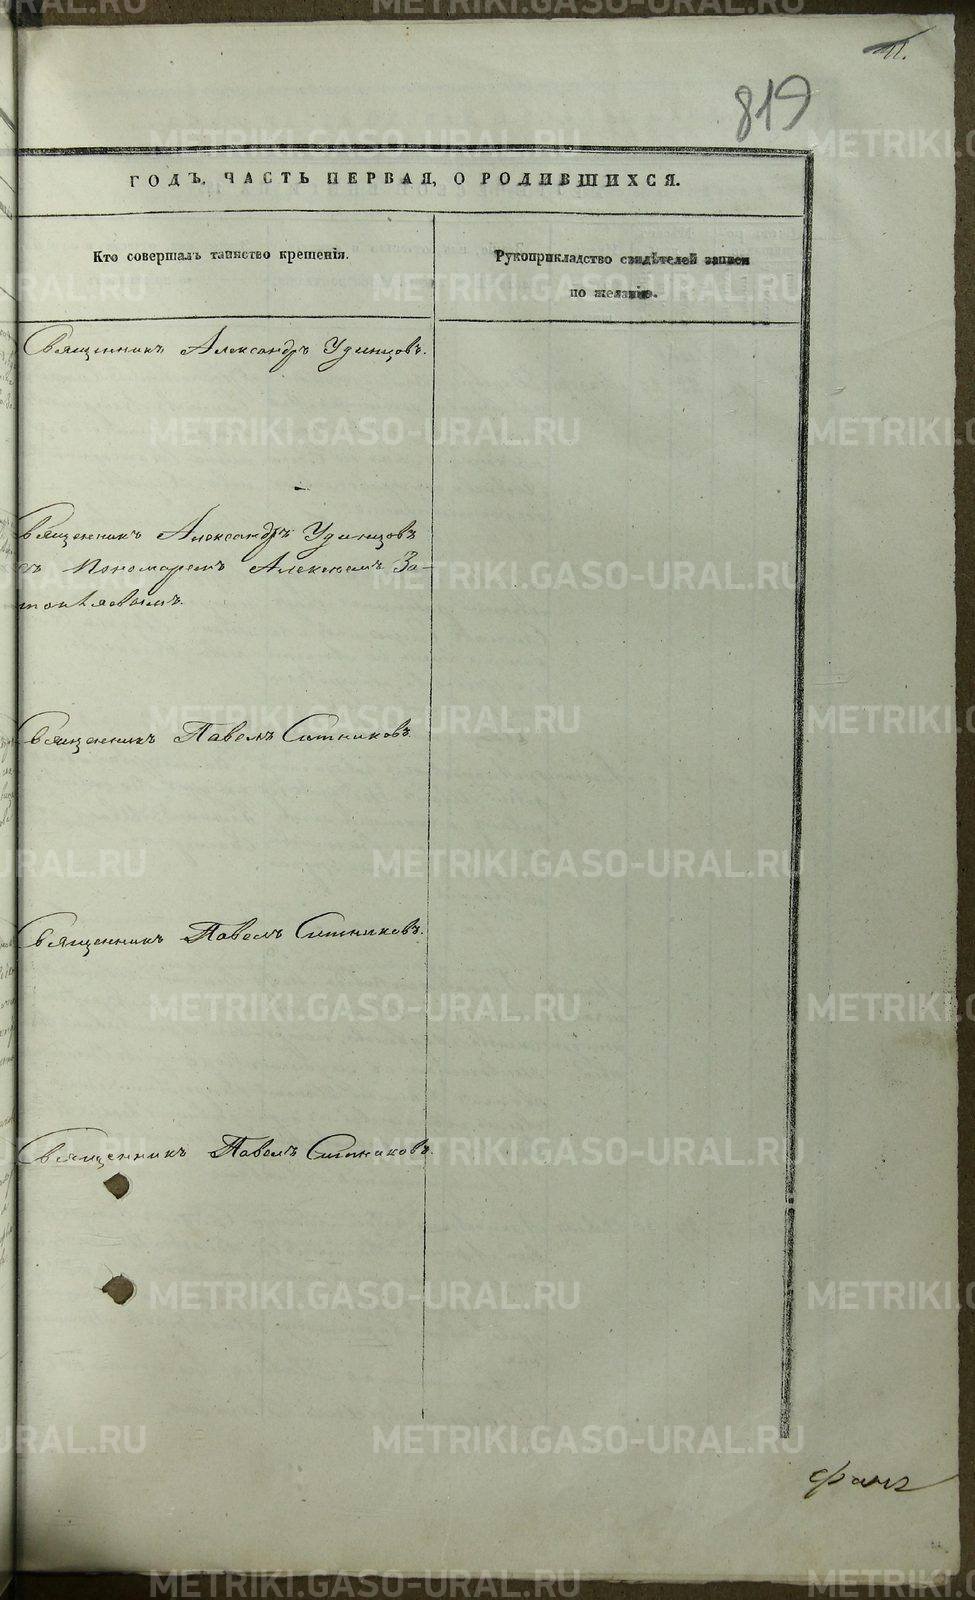 11.
819
ГОДЪ, ЧАСТЬ ПЕРВАЯ, О РОДИВШИХСЯ.
Кто совершалъ таинство крещенія.
Рукоприкладство свидѣтелей записи
по желанію.
Священникъ Александръ Удинцовъ.
Священникъ Александръ Удинцовъ
съ Пономаремъ Алексѣемъ За-
Священникъ Павелъ Ситниковъ.
Священникъ Павелъ Ситниковъ.
Священникъ Павелъ Ситниковъ.
METRIKI.GASO-URAL.RU